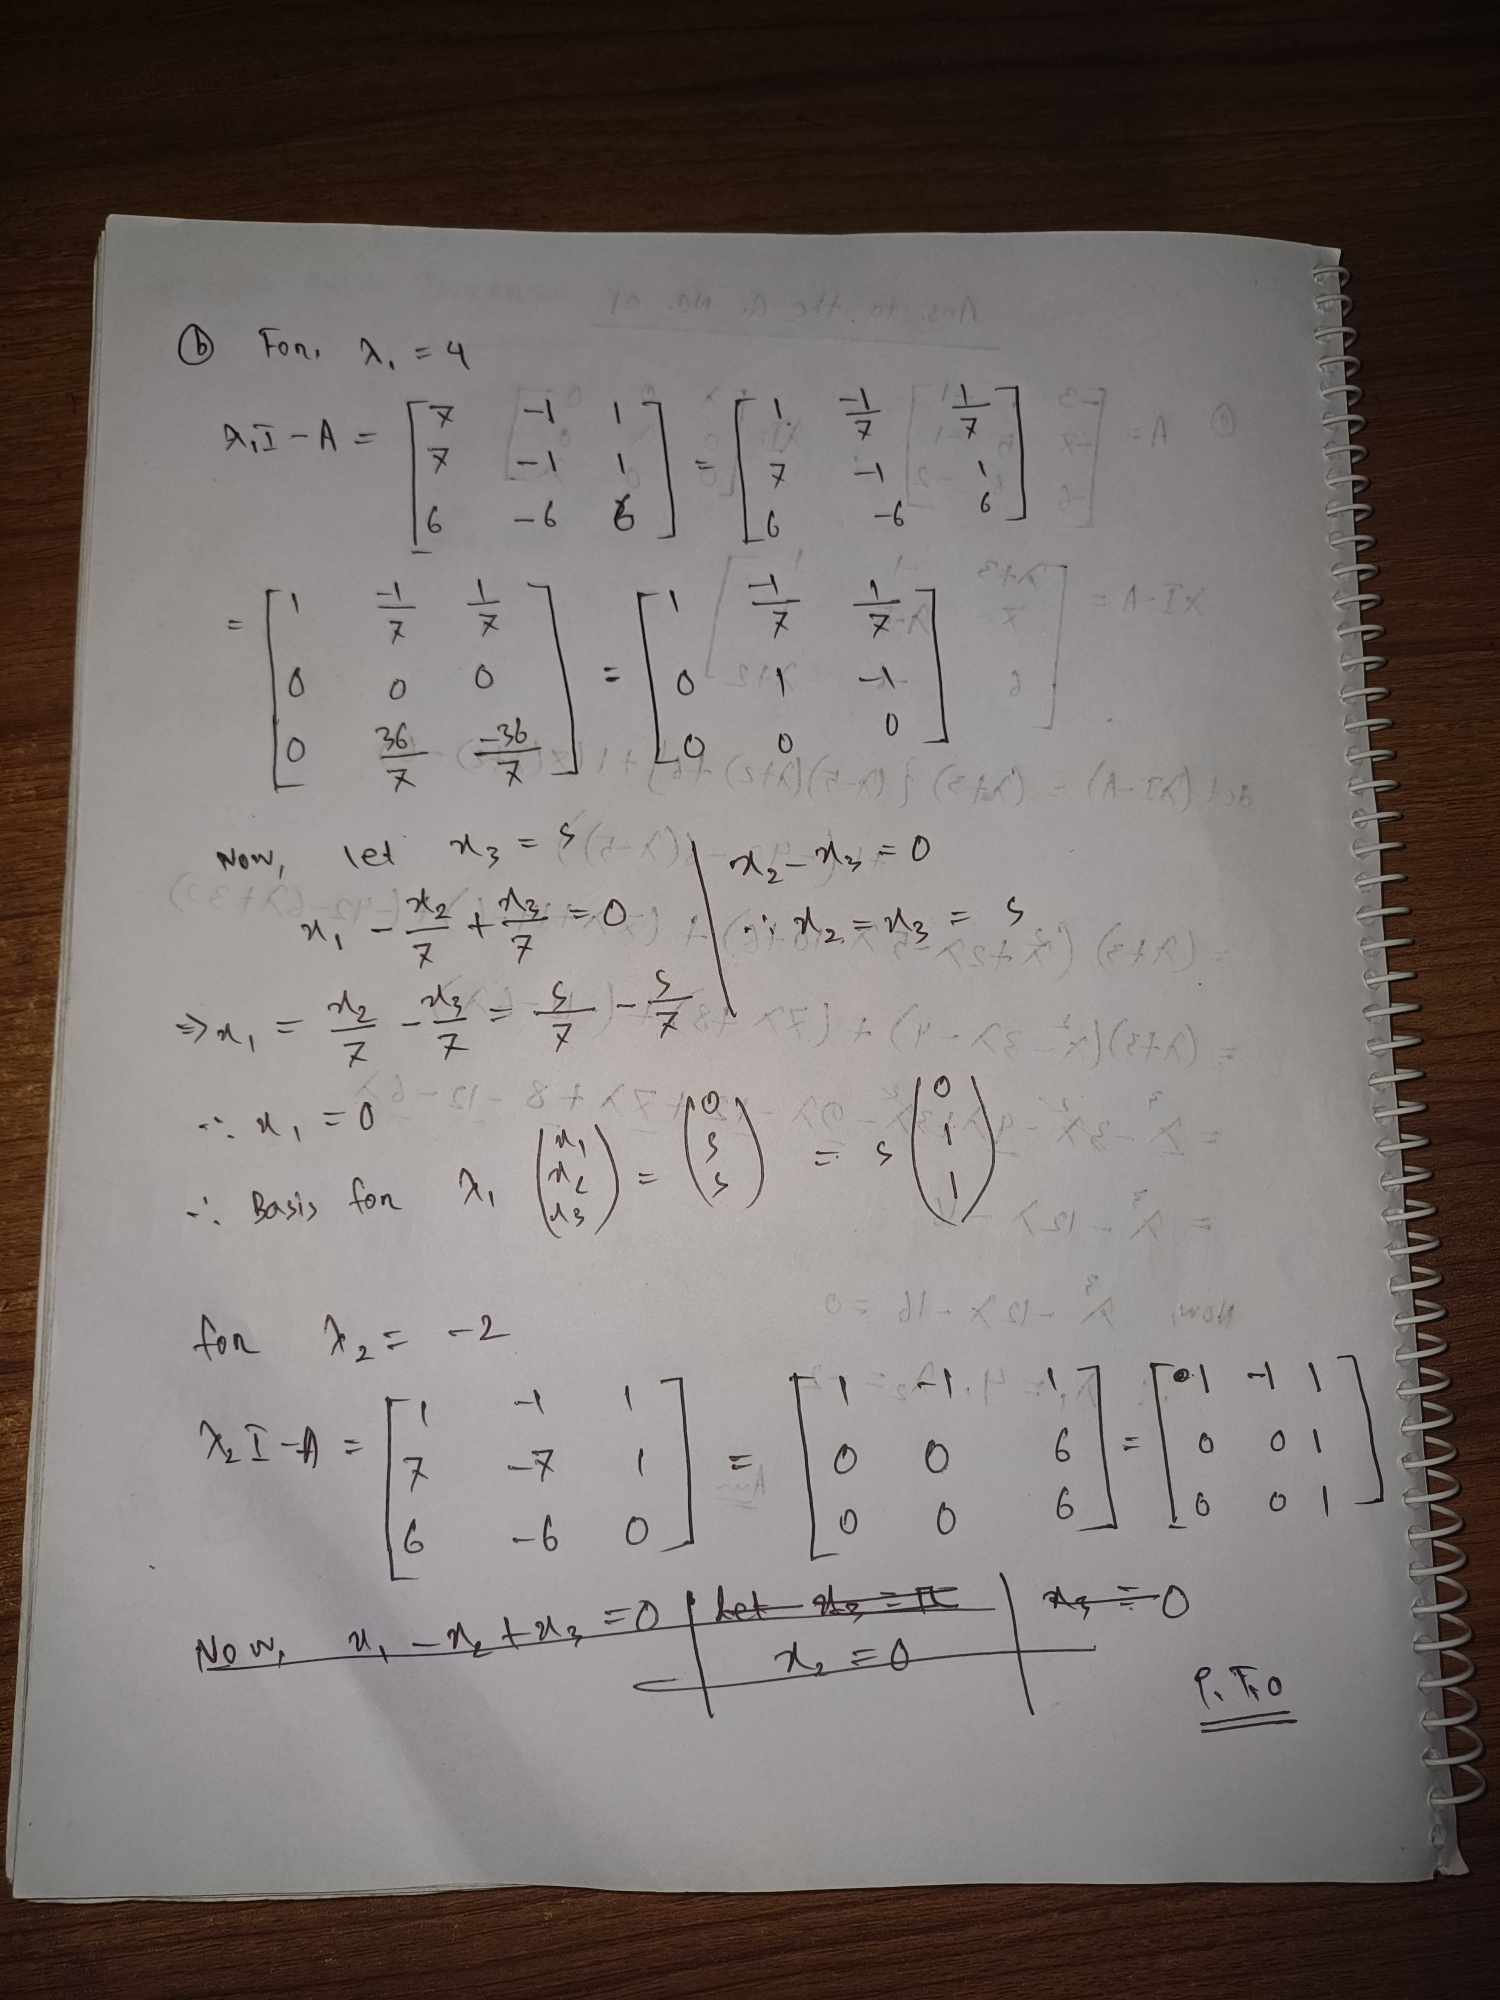 ⓑ For, λ₁ = 4
λ₁I - A = [7 -1 1; 7 -1 1; 6 -6 6] = [1 -1/7 1/7; 7 -1 1; 6 -6 6]
= [1 -1/7 1/7; 0 0 0; 0 36/7 -36/7] = [1 -1/7 1/7; 0 1 -1; 0 0 0]
Now, let x₃ = s | x₂ - x₃ = 0
x₁ - x₂/7 + x₃/7 = 0 | ∴ x₂ = x₃ = s
⇒ x₁ = x₂/7 - x₃/7 = s/7 - s/7
∴ x₁ = 0
∴ Basis for λ₁ (x₁; x₂; x₃) = (0; s; s) = s (0; 1; 1)
for λ₂ = -2
λ₂I - A = [1 -1 1; 7 -7 1; 6 -6 0] = [1 -1 1; 0 0 6; 0 0 6] = [1 -1 1; 0 0 1; 0 0 1]
Now, x₁ - x₂ + x₃ = 0 | Let x₃ = | x₃ = 0
x₂ = 0
P.T.O